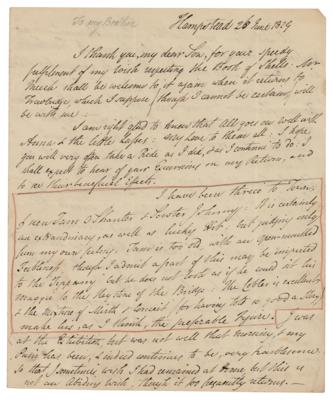 To my Brother
Hampstead 28 June 1829
I thank you, my dear Son, for your speedy
fulfilment of my wish respecting the Book of Shells. Mr
shall be welcome to it again when I return to
Trowbridge, which I suppose, though I cannot be certain, will
be with me
I am right glad to know that all goes on well with
Anna & the little Lasses: my love to them all: I hope
you will very often take a Ride as I did, & as I continue to do: I
shall expect to hear of your Excursions on my Return, and
to see their beneficial Effects.
I have been thrice to Town,
& seen Tam O'Shanter & Souter Johnny. It is certainly
an extraordinary, as well as lucky Hit, but judging only
from my own feeling, Tam is too old, with an open-mouthed
though I admit a part of this may be imputed
to the Tippany but he does not look as if he could its his
to the Keystone of the Bridge. The Cobler is excellent
& the mixture of Mirth & Conceit for having told so good a Story
make his, as I think, the preferable Figure. I was
at the Exhibition, but was not well that morning, & my
Pain has been, & indeed continues to be, very troublesome
So that I sometimes wish I had remained at Home, but this is
not an abiding wish, though it too frequently returns. —